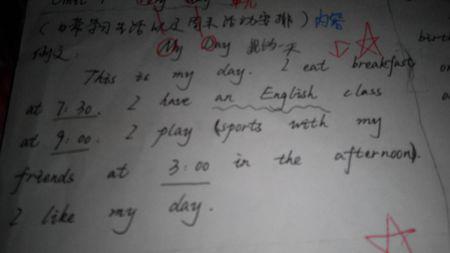 (日常学习生活以及周末活动安排) 内容
例文: My Day 我的一天
This is my day. I eat breakfast
at 7:30. I have an English class
at 9:00. I play (sports with my
friends at 3:00 in the afternoon).
I like my day.